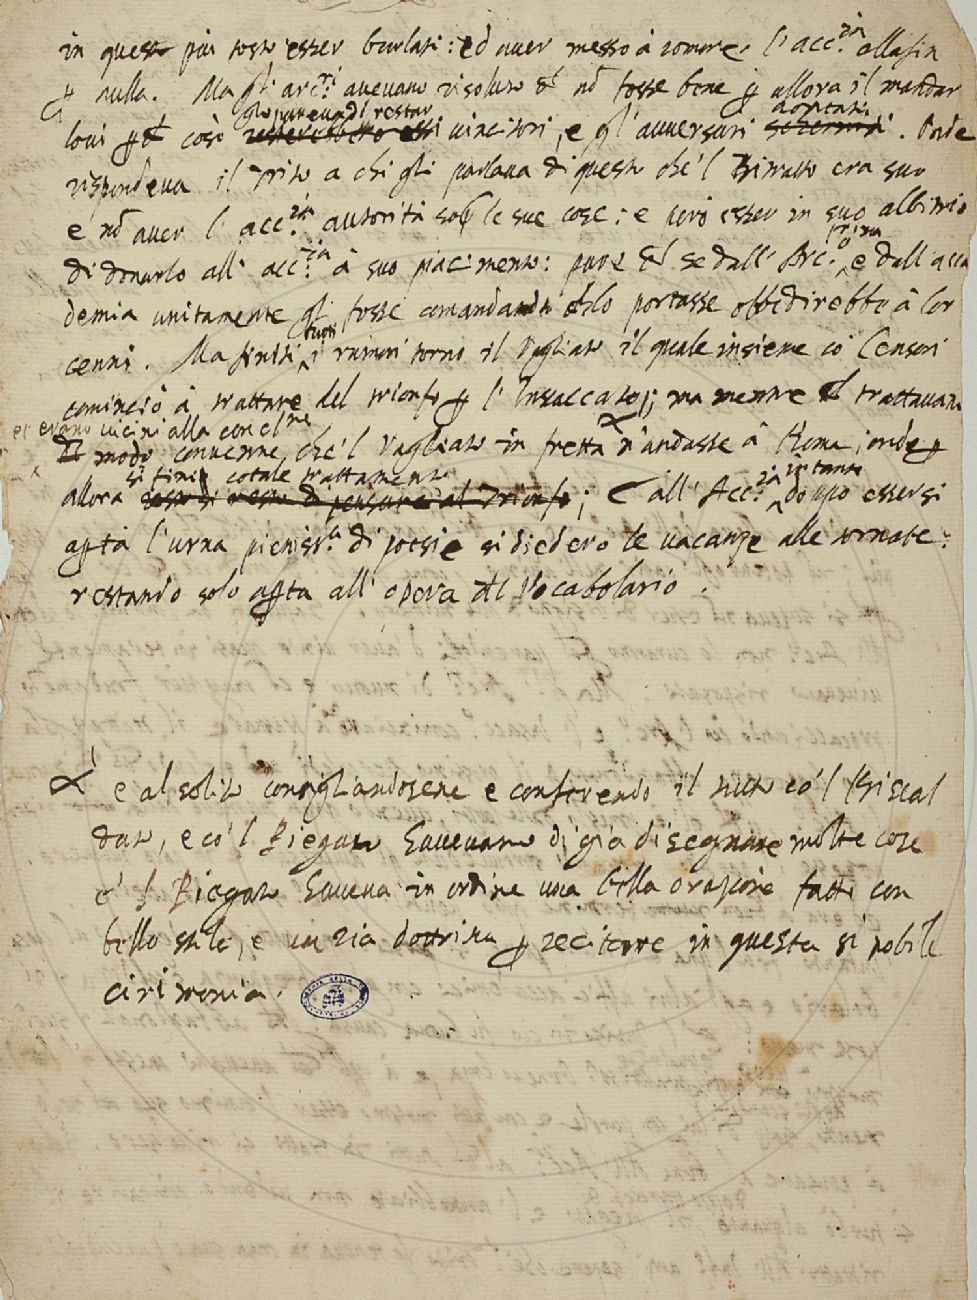 in questo più tosto esser burlati: ed auer messo à romore l'acc.ia alla fin
p nulla. Ma gli arc.i aueuano risoluto ch nō fosse bene p allora il mandar
gli pareua di restar
loui p ch così vincitori, e gl'auuersari . Onde
rispondeua il Trito a chi gli parlaua di questo che'l Ritratto era suo
e nō auer l'acc.ia autorità sop le sue cose: e però esser in suo albitrio
prima
di donarlo all'acc.ia à suo piacimento: pure ch se dall'Arc.o e dall'acca
demia unitamente gli fosse comandando chelo portasse obbedirebbe à lor
tutti
cenni. Ma finiti i rumori torno il Vagliato il quale insieme co' Censori
cominciò à trattare del trionfo p l'Insaccato; ma mentre ch trattauano
et erano vicini alla concl.ne
modo conuenne che'l Vagliato in fretta n'andasse à Roma; onde p
si finì cotale trattamento
allora resto di pensare al Trionfo; E all'Acc.ia intanto doppo essersi
apta l'urna pieniss.a di poesie si diedero le uacanze alle tornate:
restando solo apta all'opera del Vocabolario.
e al solito consigliandosene e conferendo il tutto co'l Riscal
dato, e co'l Riegato haueuano di già disegnate molte cose
e'l Riegato haueua in ordine una bella orazione fatta con
bello stile, e uaria dottrina p recitarre in questa sì nobile
cirimonia.